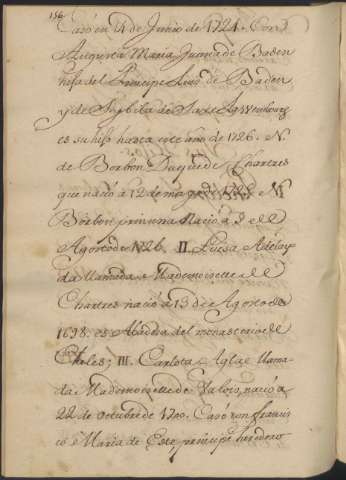 156
Casó en 14 de Junio de 1724. Con
Augusta Maria Juana de Baden
hija del Principe Luis de Baden
y de Sybila de Saxe
es su hijo hasta este año de 1726. N.
de Borbon Duque de Chartres
que nació à 12 de mayo de 1725. N.
Borbon nació a 5 de
Agosto de 1726. II. Luisa Adelay
da llamada Mademoiselle de
Chartres nació à 13 de Agosto de
1698. es Abadesa del monasterio de
Cheles; III. Carlota Aglae llama
da Mademoiselle de Valois, nació a
22 de octubre de 1700. Casó con francis
co Maria de Este principe heredero